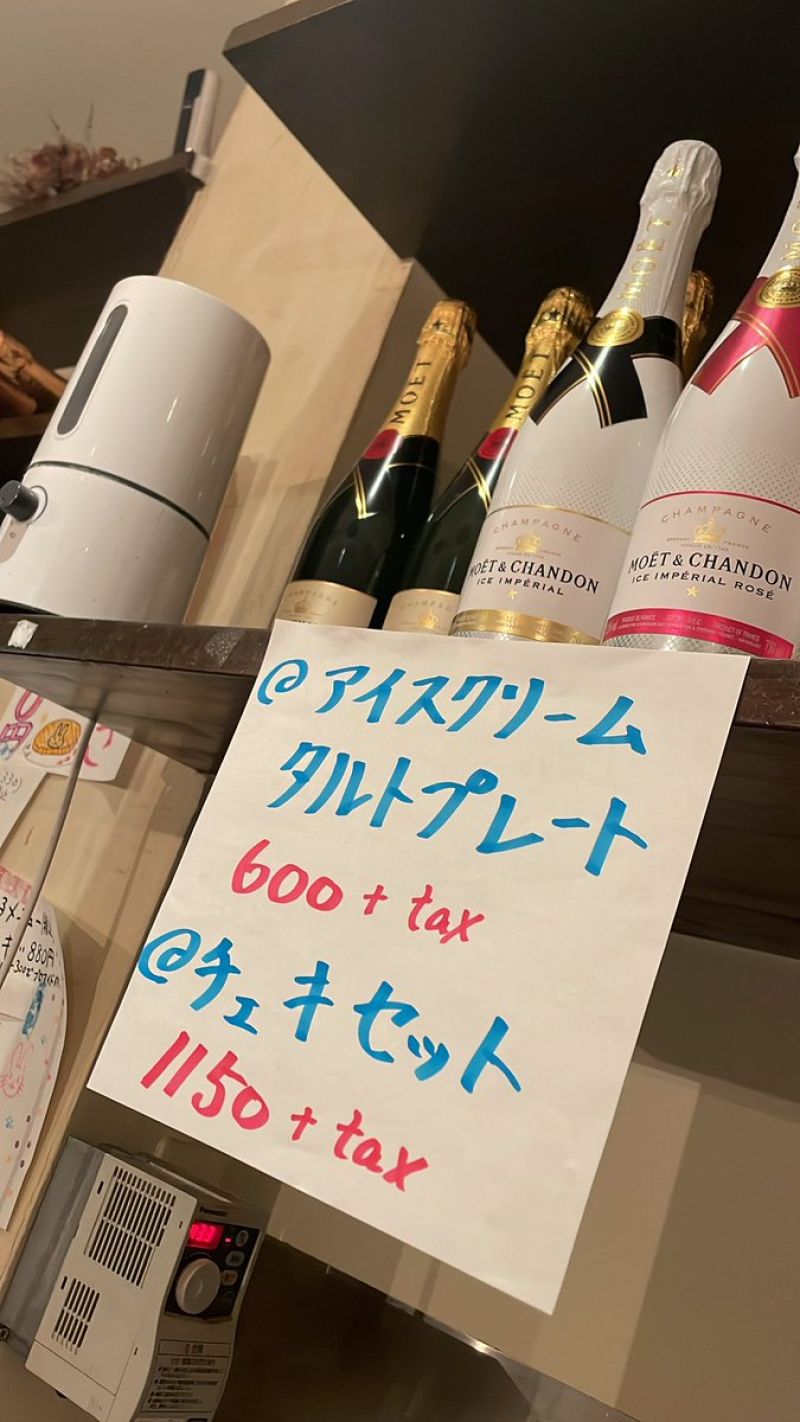 MOET
MOET
MOET
CHAMPAGNE
MOËT & CHANDON
ICE IMPÉRIAL
CHAMPAGNE
MOËT & CHANDON
ICE IMPÉRIAL ROSÉ
CHAMPAGNE
@アイスクリーム
タルトプレート
600+tax
@チェキセット
1150+tax
880円
Panasonic